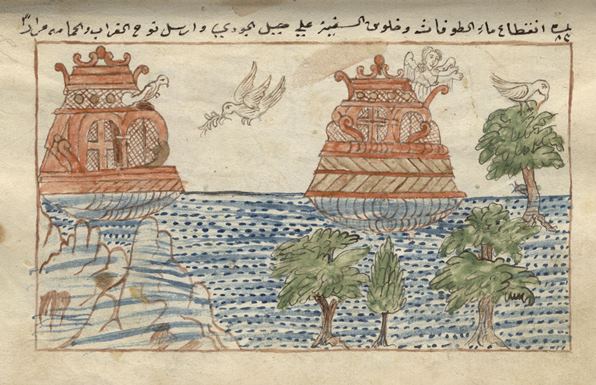 انقطاع ماء الطوفان وجلوس السفينة علي جبل الجودي وارسل نوح الغراب والحمامه مرارا